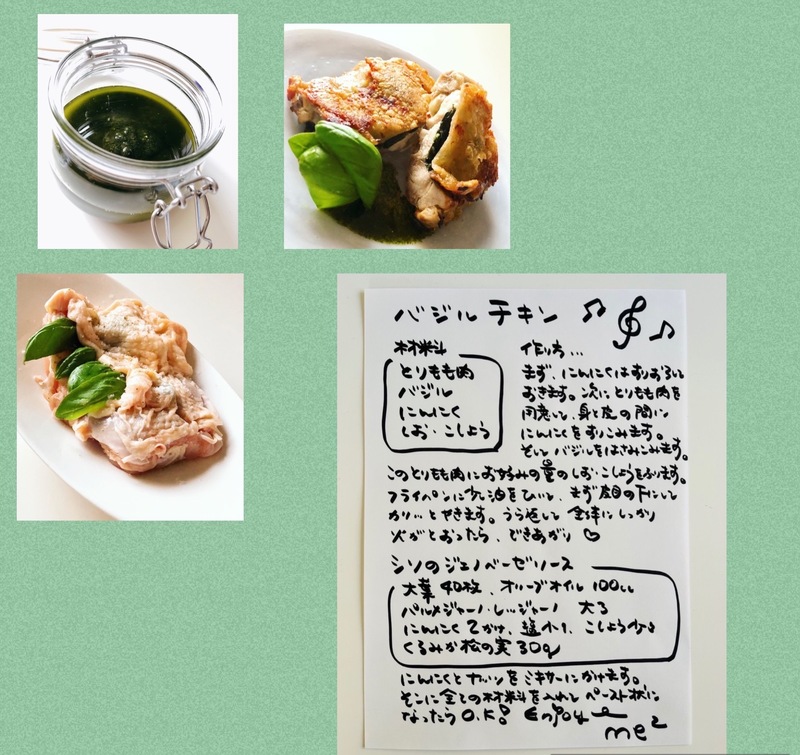 バジル チキン
材料
とりもも肉
バジル
にんにく
しお・こしょう
作り方...
まず、にんにくはすりおろして
おきます。次にとりもも肉を
用意して、身と皮の間に
にんにくをすりこみます。
そして バジルをはさみこみます。
このとりもも肉にお好みの量のしお・こしょうをふります。
フライパンに少し油をひいて、まず皮目の下にして
カリッとやきます。うら返して 全体にしっかり
火がとおったら、できあがり♡
シソのジェノベーゼソース
大葉40枚、オリーブオイル 100cc
パルメジャーノ・レッジャーノ 大3
にんにく2かけ、塩小1、こしょう少々
くるみか松の実30g
にんにくとナッツをミキサーにかけます。
そこに全ての材料を入れて ペースト状に
なったらO.K! Enjoy
me2